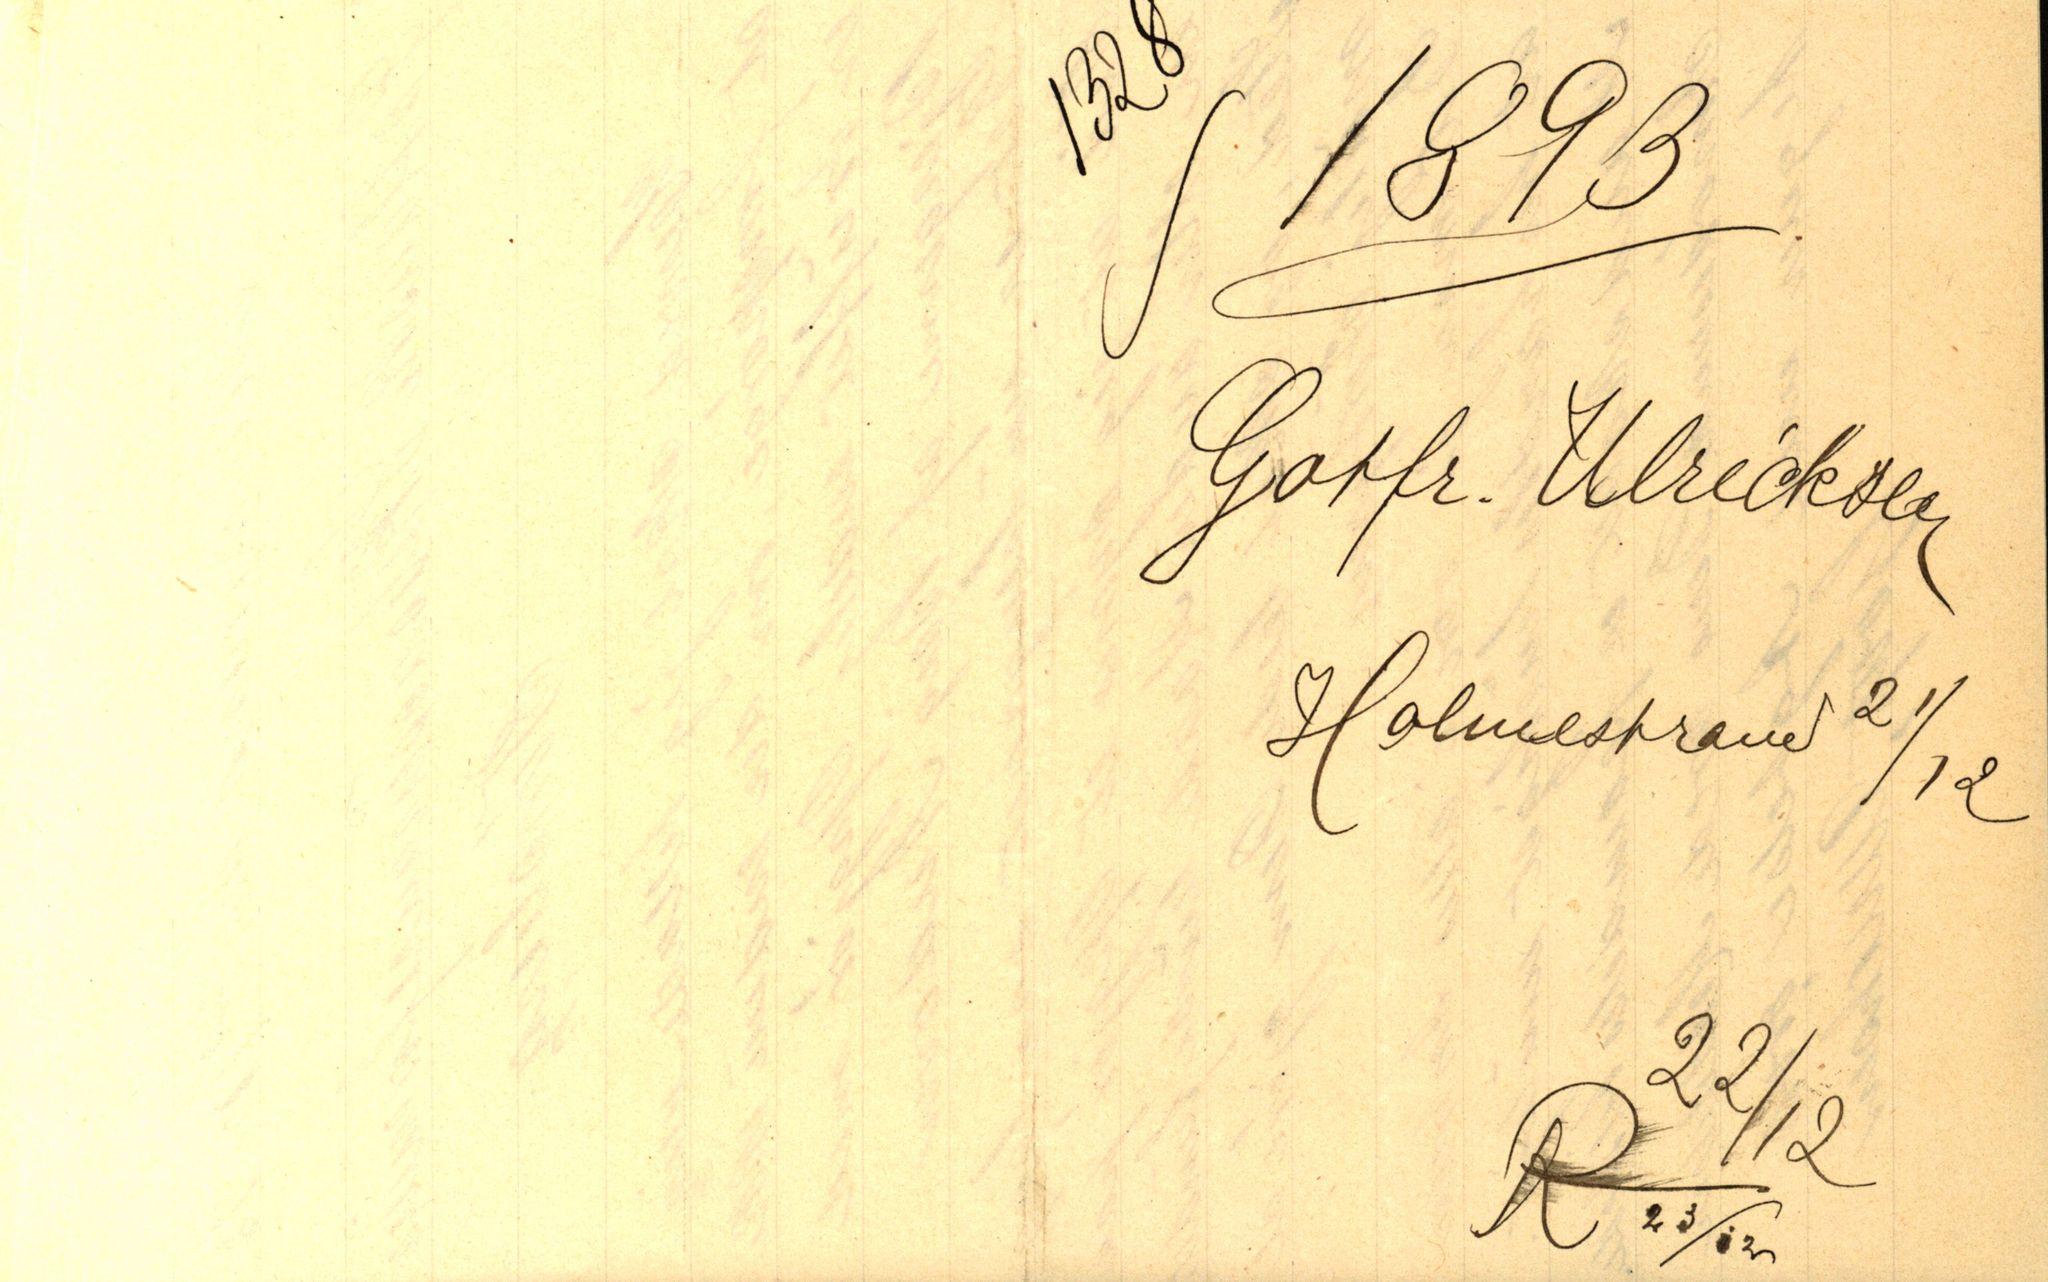 1328
1893
Gotfr. Ulricksen
Holmestrand 21/12
22/12
R 23/12